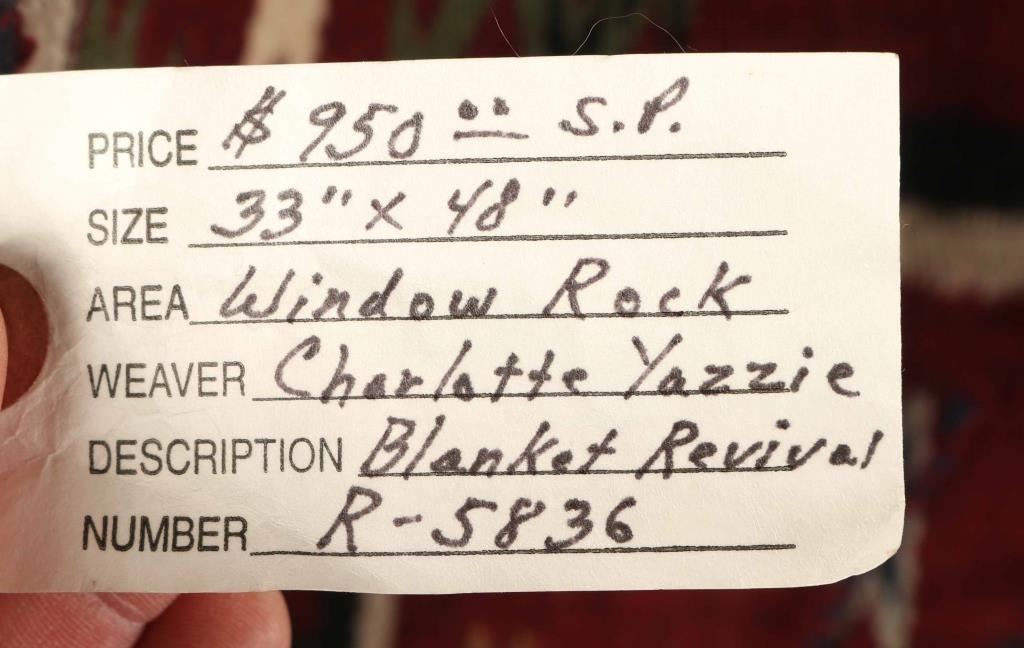 PRICE $ 950 00 S.P.
SIZE 33" x 48"
AREA Window Rock
WEAVER Charlotte Yazzie
DESCRIPTION Blanket Revival
NUMBER R-5836